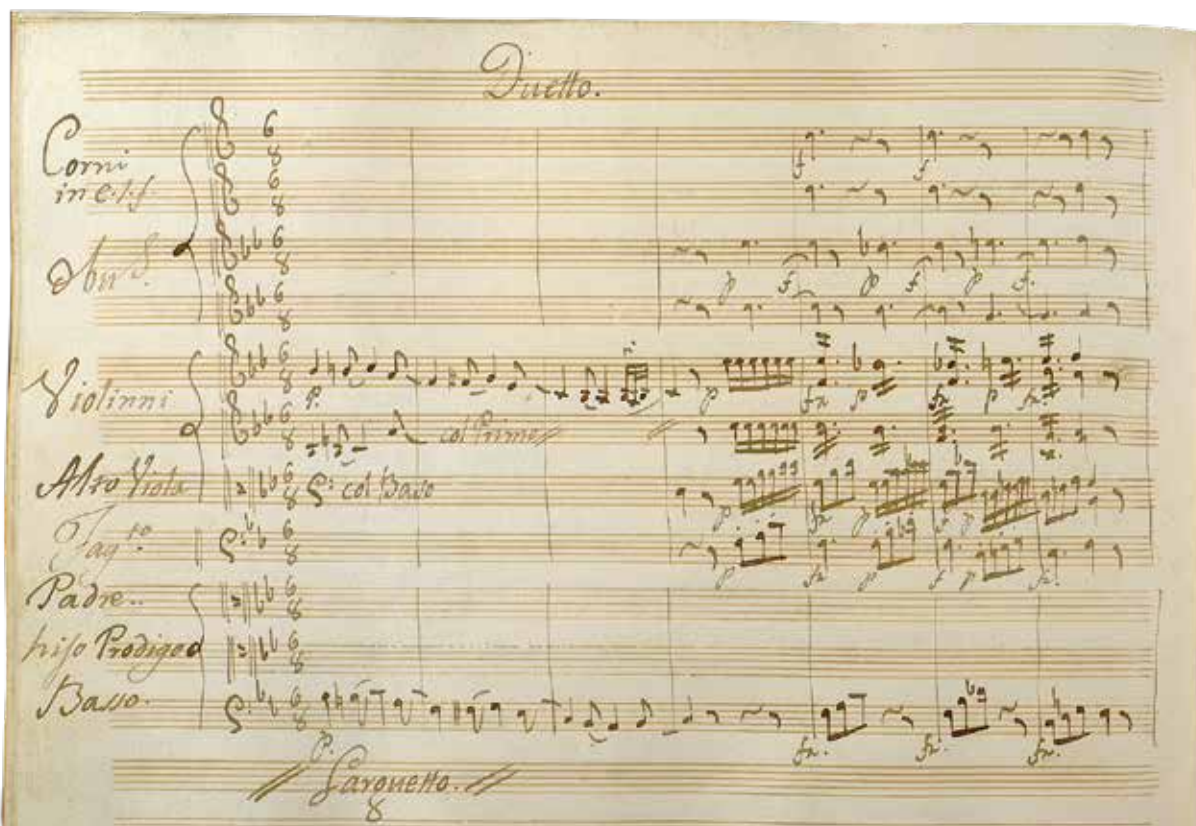 Duetto.
Corni
in e.l.f.
Obue.s
Violinni
p.
col Primo
Alto Viola
col Baso
Fag.to
Padre..
hijo Prodigo
Basso.
p.
Larguetto.